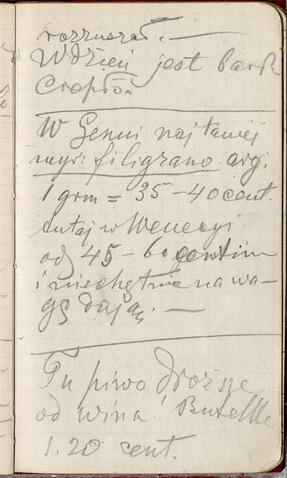 rozruszał. —
W dzień jest bardz
Ciepło.
W Genui najtaniej
filigrano
1 grm = 35 – 40 cent.
tutaj w Wenecyi
od 45 – 60 centim
i niechętnie na wa-
gę dają. —
Tu piwo droższe
od wina! Butelka
1.20 cent.